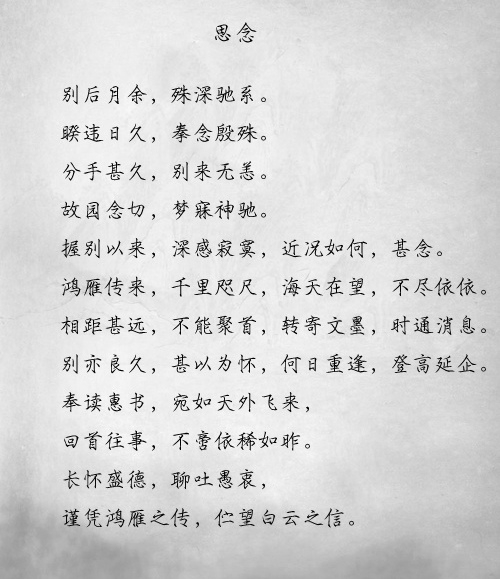 思念
别后月余，殊深驰系。
睽违日久，拳念殷殊。
分手甚久，别来无恙。
故园念切，梦寐神驰。
握别以来，深感寂寞，近况如何，甚念。
鸿雁传来，千里咫尺，海天在望，不尽依依。
相距甚远，不能聚首，转寄文墨，时通消息。
别亦良久，甚以为怀，何日重逢，登高延企。
奉读惠书，宛如天外飞来，
回首往事，不啻依稀如昨。
长怀盛德，聊吐愚衷，
谨凭鸿雁之传，伫望白云之信。